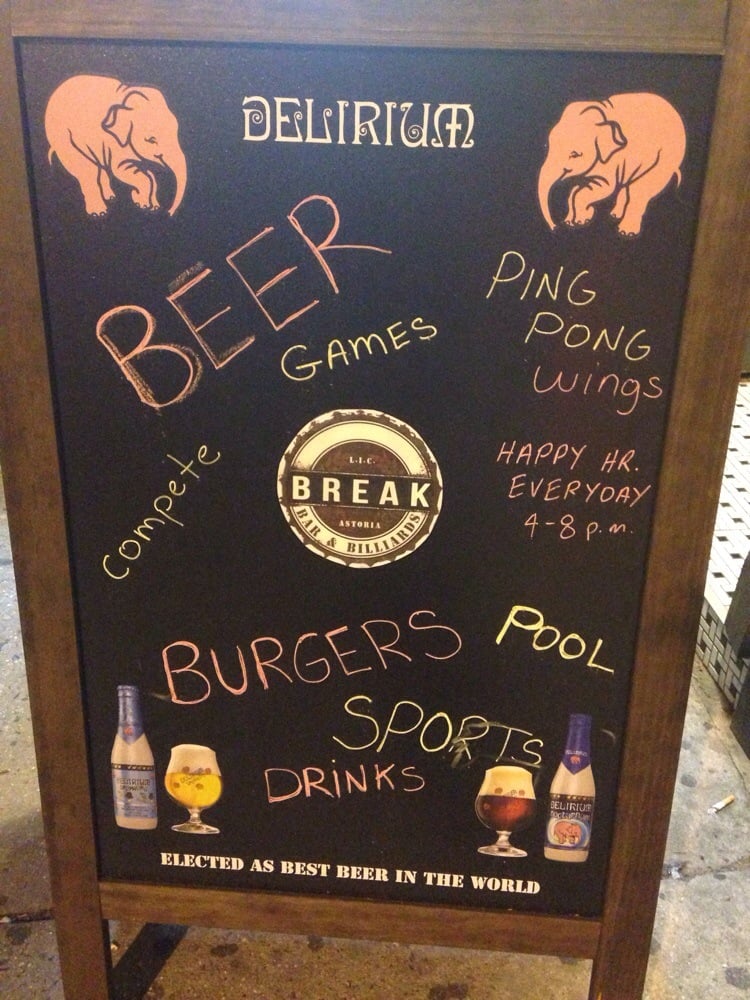 DELIRIUM
BEER
GAMES
PING
PONG
wings
compete
L.I.C.
BREAK
ASTORIA
BAR & BILLIARDS
HAPPY HR.
EVERYDAY
4-8 p.m.
BURGERS
POOL
SPORTS
DRiNKS
DELIRIUM
DELIRIUM
nocturnum
ELECTED AS BEST BEER IN THE WORLD